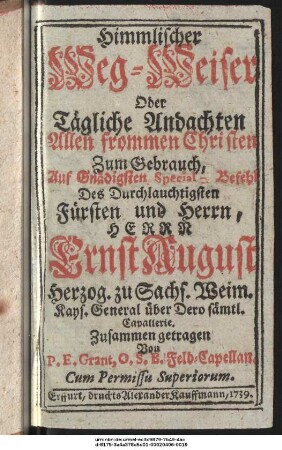 Himmlischer
Weg-Weiser
Oder
Tägliche Andachten
Allen frommen Christen
Zum Gebrauch,
Auf Gnädigsten Special-Befehl
Des Durchlauchtigsten
Fürsten und Herrn,
HERRN
Ernst August
Herzog. zu Sachs. Weim.
Kays. General über Dero sämtl.
Cavallerie.
Zusammen getragen
Von
P. E. Grant, O. S. B. Feld-Capellan.
Cum Permissu Superiorum.
Erffurt, druckts Alexander Kauffmann, 1739.